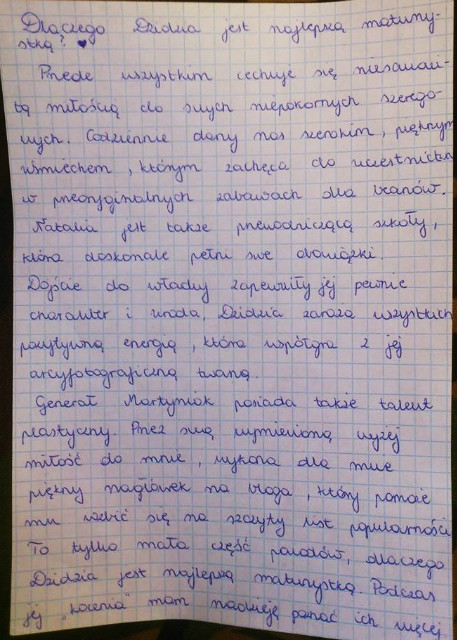 Dlaczego Dzidzia jest najlepszą maturzy-
stką? ♥
Przede wszystkim cechuje się niesamowi-
tą miłością do swych niepokornych szerego-
wych. Codziennie darzy nas szerokim, pięknym
uśmiechem, którym zachęca do uczestnictwa
w przeoryginalnych zabawach dla kranów.
Natalia jest także przewodniczącą szkoły,
która doskonale pełni swe obowiązki.
Dojście do władzy zapewniły jej pewnie
charakter i uroda. Dzidzia zaraża wszystkich
pozytywną energią, która współgra z jej
arcyfotograficzną twarzą.
Generał Martyniak posiada także talent
plastyczny. Przez swą wymienioną wyżej
miłość do mnie, wykona dla mnie
piękny nagłówek na bloga, który pomoże
mu wzbić się na szczyty list popularności
To tylko mała część powodów, dlaczego
Dzidzia jest najlepszą maturzystką. Podczas
jej „kocenia" mam nadzieję poznać ich więcej